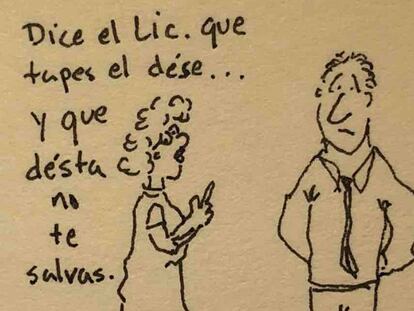 Dice el Lic. que
tapes el dése...
y que
désta
no
te
salvas.